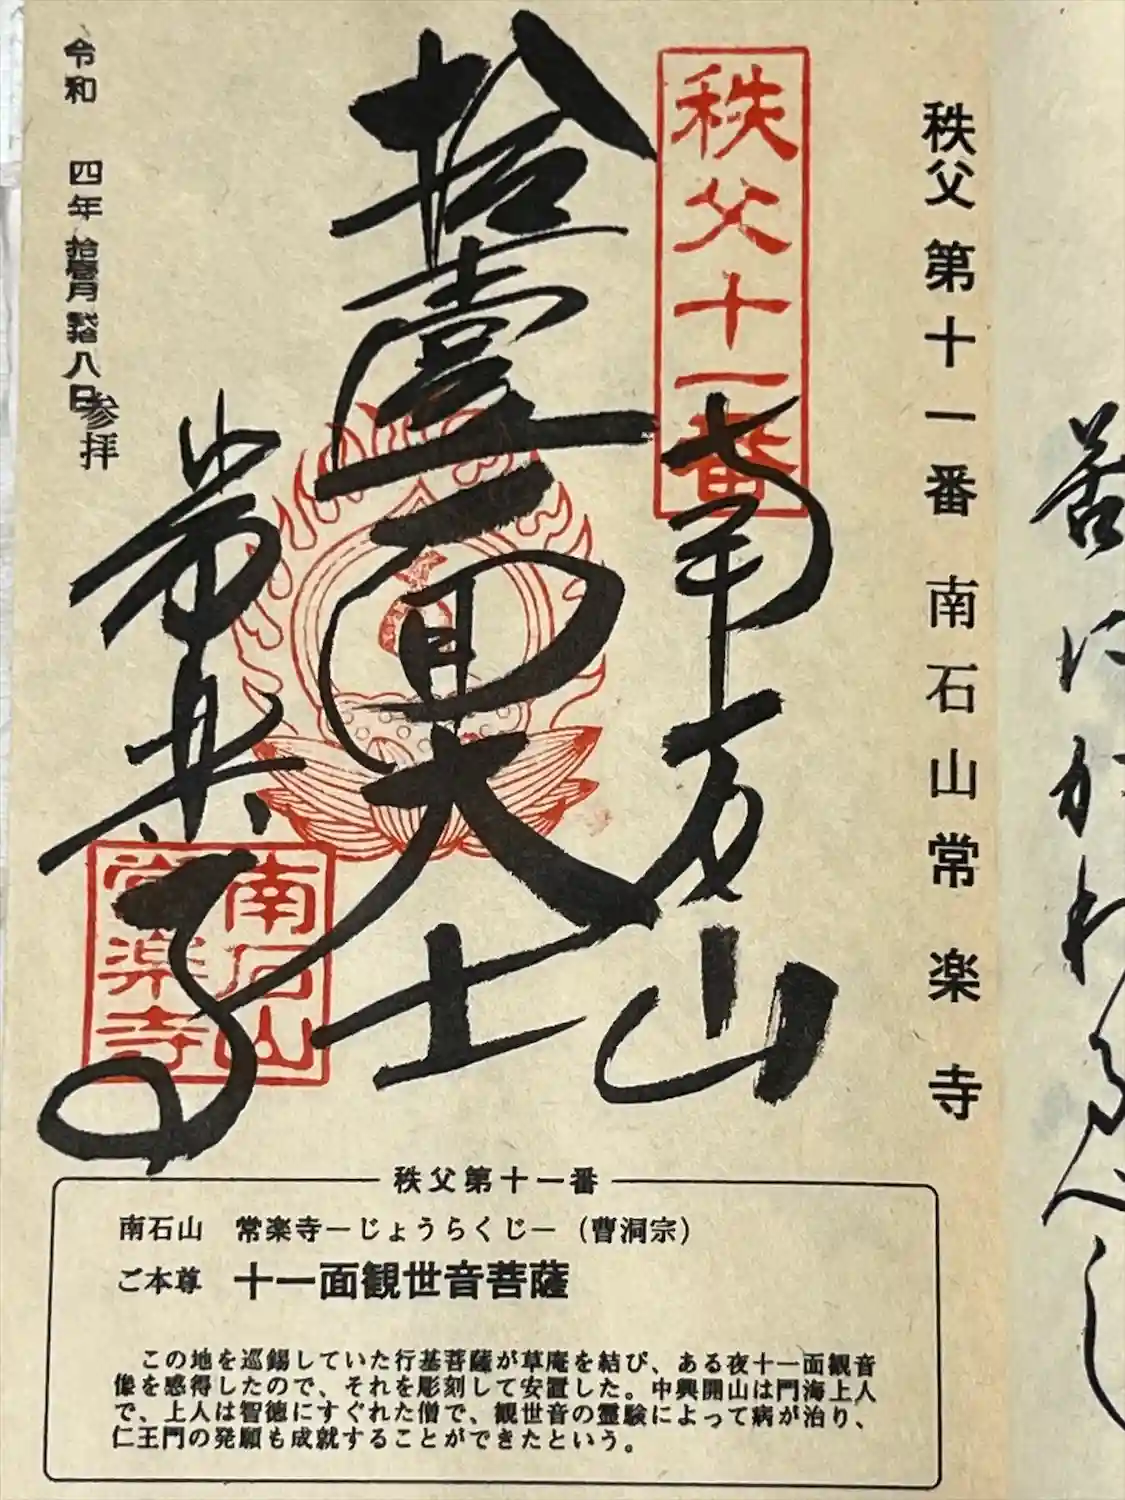 秩父第十一番 南石山常楽寺
秩父十一番
南石山
拾壹面大士
常楽寺
南石山
常楽寺
令和 四年 拾壹月 八日
参拝
秩父第十一番
南石山 常楽寺―じょうらくじ―(曹洞宗)
ご本尊 十一面観世音菩薩
この地を巡錫していた行基菩薩が草庵を結び、ある夜十一面観音
像を感得したので、それを彫刻して安置した。中興開山は門海上人
で、上人は智徳にすぐれた僧で、観世音の霊験によって病が治り、
仁王門の発願も成就することができたという。